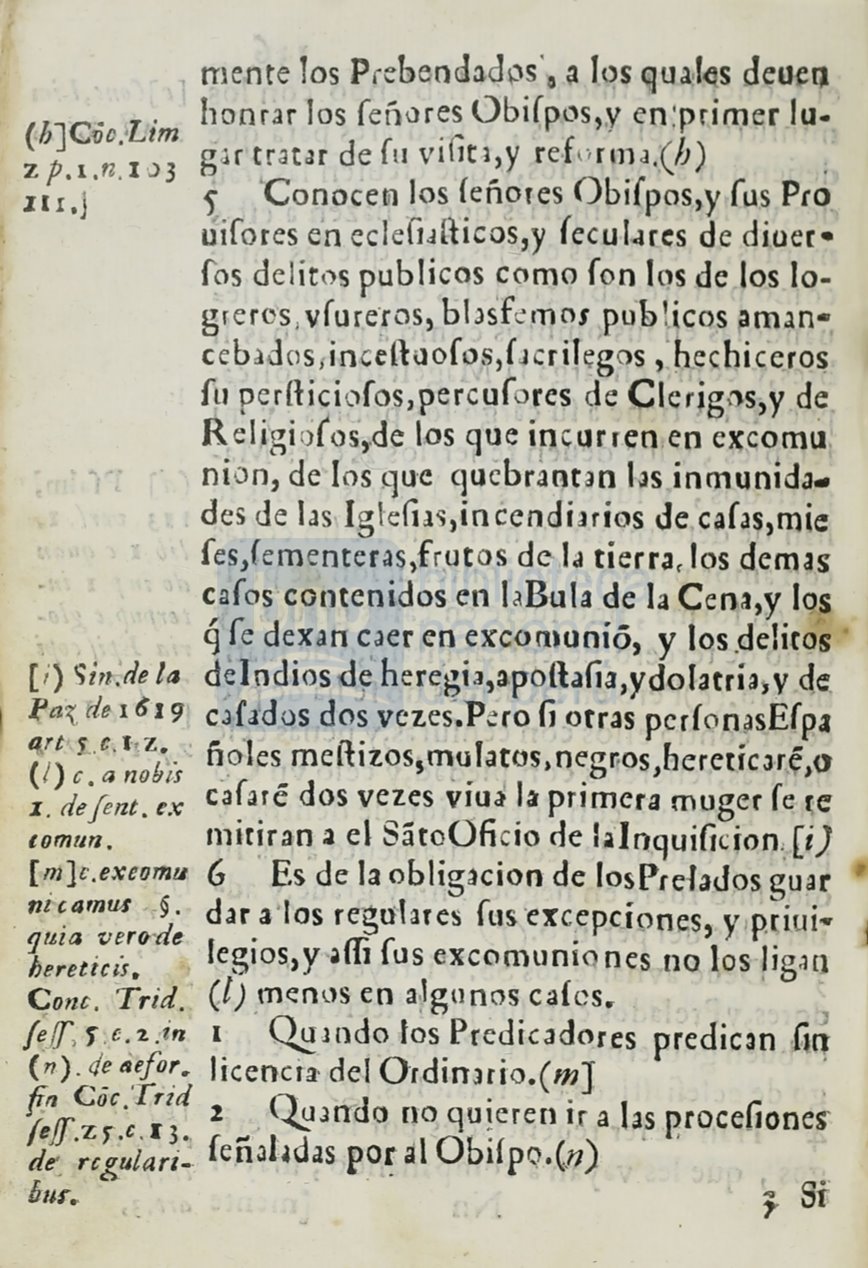 mente los Prebendados, a los quales deuen
honrar los ſeñores Obiſpos,y en primer lu-
gar tratar de ſu viſita,y reforma.(h)
(h]Cōc.Lim
2 p.1.n.103
111.]
5 Conocen los ſeñores Obiſpos,y ſus Pro
uiſores en ecleſiaſticos,y ſeculares de diuer-
ſos delitos publicos como ſon los de los lo-
greros,vſureros, blasfemos publicos aman-
cebados,inceſtuoſos,ſacrilegos , hechiceros
ſu perſticioſos,percuſores de Clerigos,y de
Religioſos,de los que incurren en excomu
nion, de los que quebrantan las inmunida-
des de las Igleſias,incendiarios de caſas,mie
ſes,ſementeras,frutos de la tierra,los demas
caſos contenidos en laBula de la Cena,y los
q́ ſe dexan caer en excomunió, y los delitos
deIndios de heregia,apoſtaſia,ydolatria,y de
caſados dos vezes.Pero ſi otras perſonasEſpa
ñoles meſtizos,mulatos,negros,hereticarē,o
caſarē dos vezes viua la primera muger ſe re
mitiran a el SātoOficio de laInquiſicion.[i)
[i) Sin.de la
Paz de 1619
art 5.c.1.2.
6 Es de la obligacion de losPrelados guar
dar a los regulares ſus excepciones, y priui-
legios,y aſſi ſus excomuniones no los ligan
(l) menos en algunos caſos.
(l) c. a nobis
1. de ſent. ex
comun.
1 Quando los Predicadores predican ſin
licencia del Ordinario.(m]
[m]c.excomu
nicamus §.
quia vero de
hereticis.
Conc. Trid.
ſeſſ. 5 c.2.in
2 Quando no quieren ir a las proceſiones
ſeñaladas por al Obiſpo.(n)
(n). de refor.
fin Cōc.Trid
ſeſſ.25.c.13.
de regulari-
bus.
3 Si